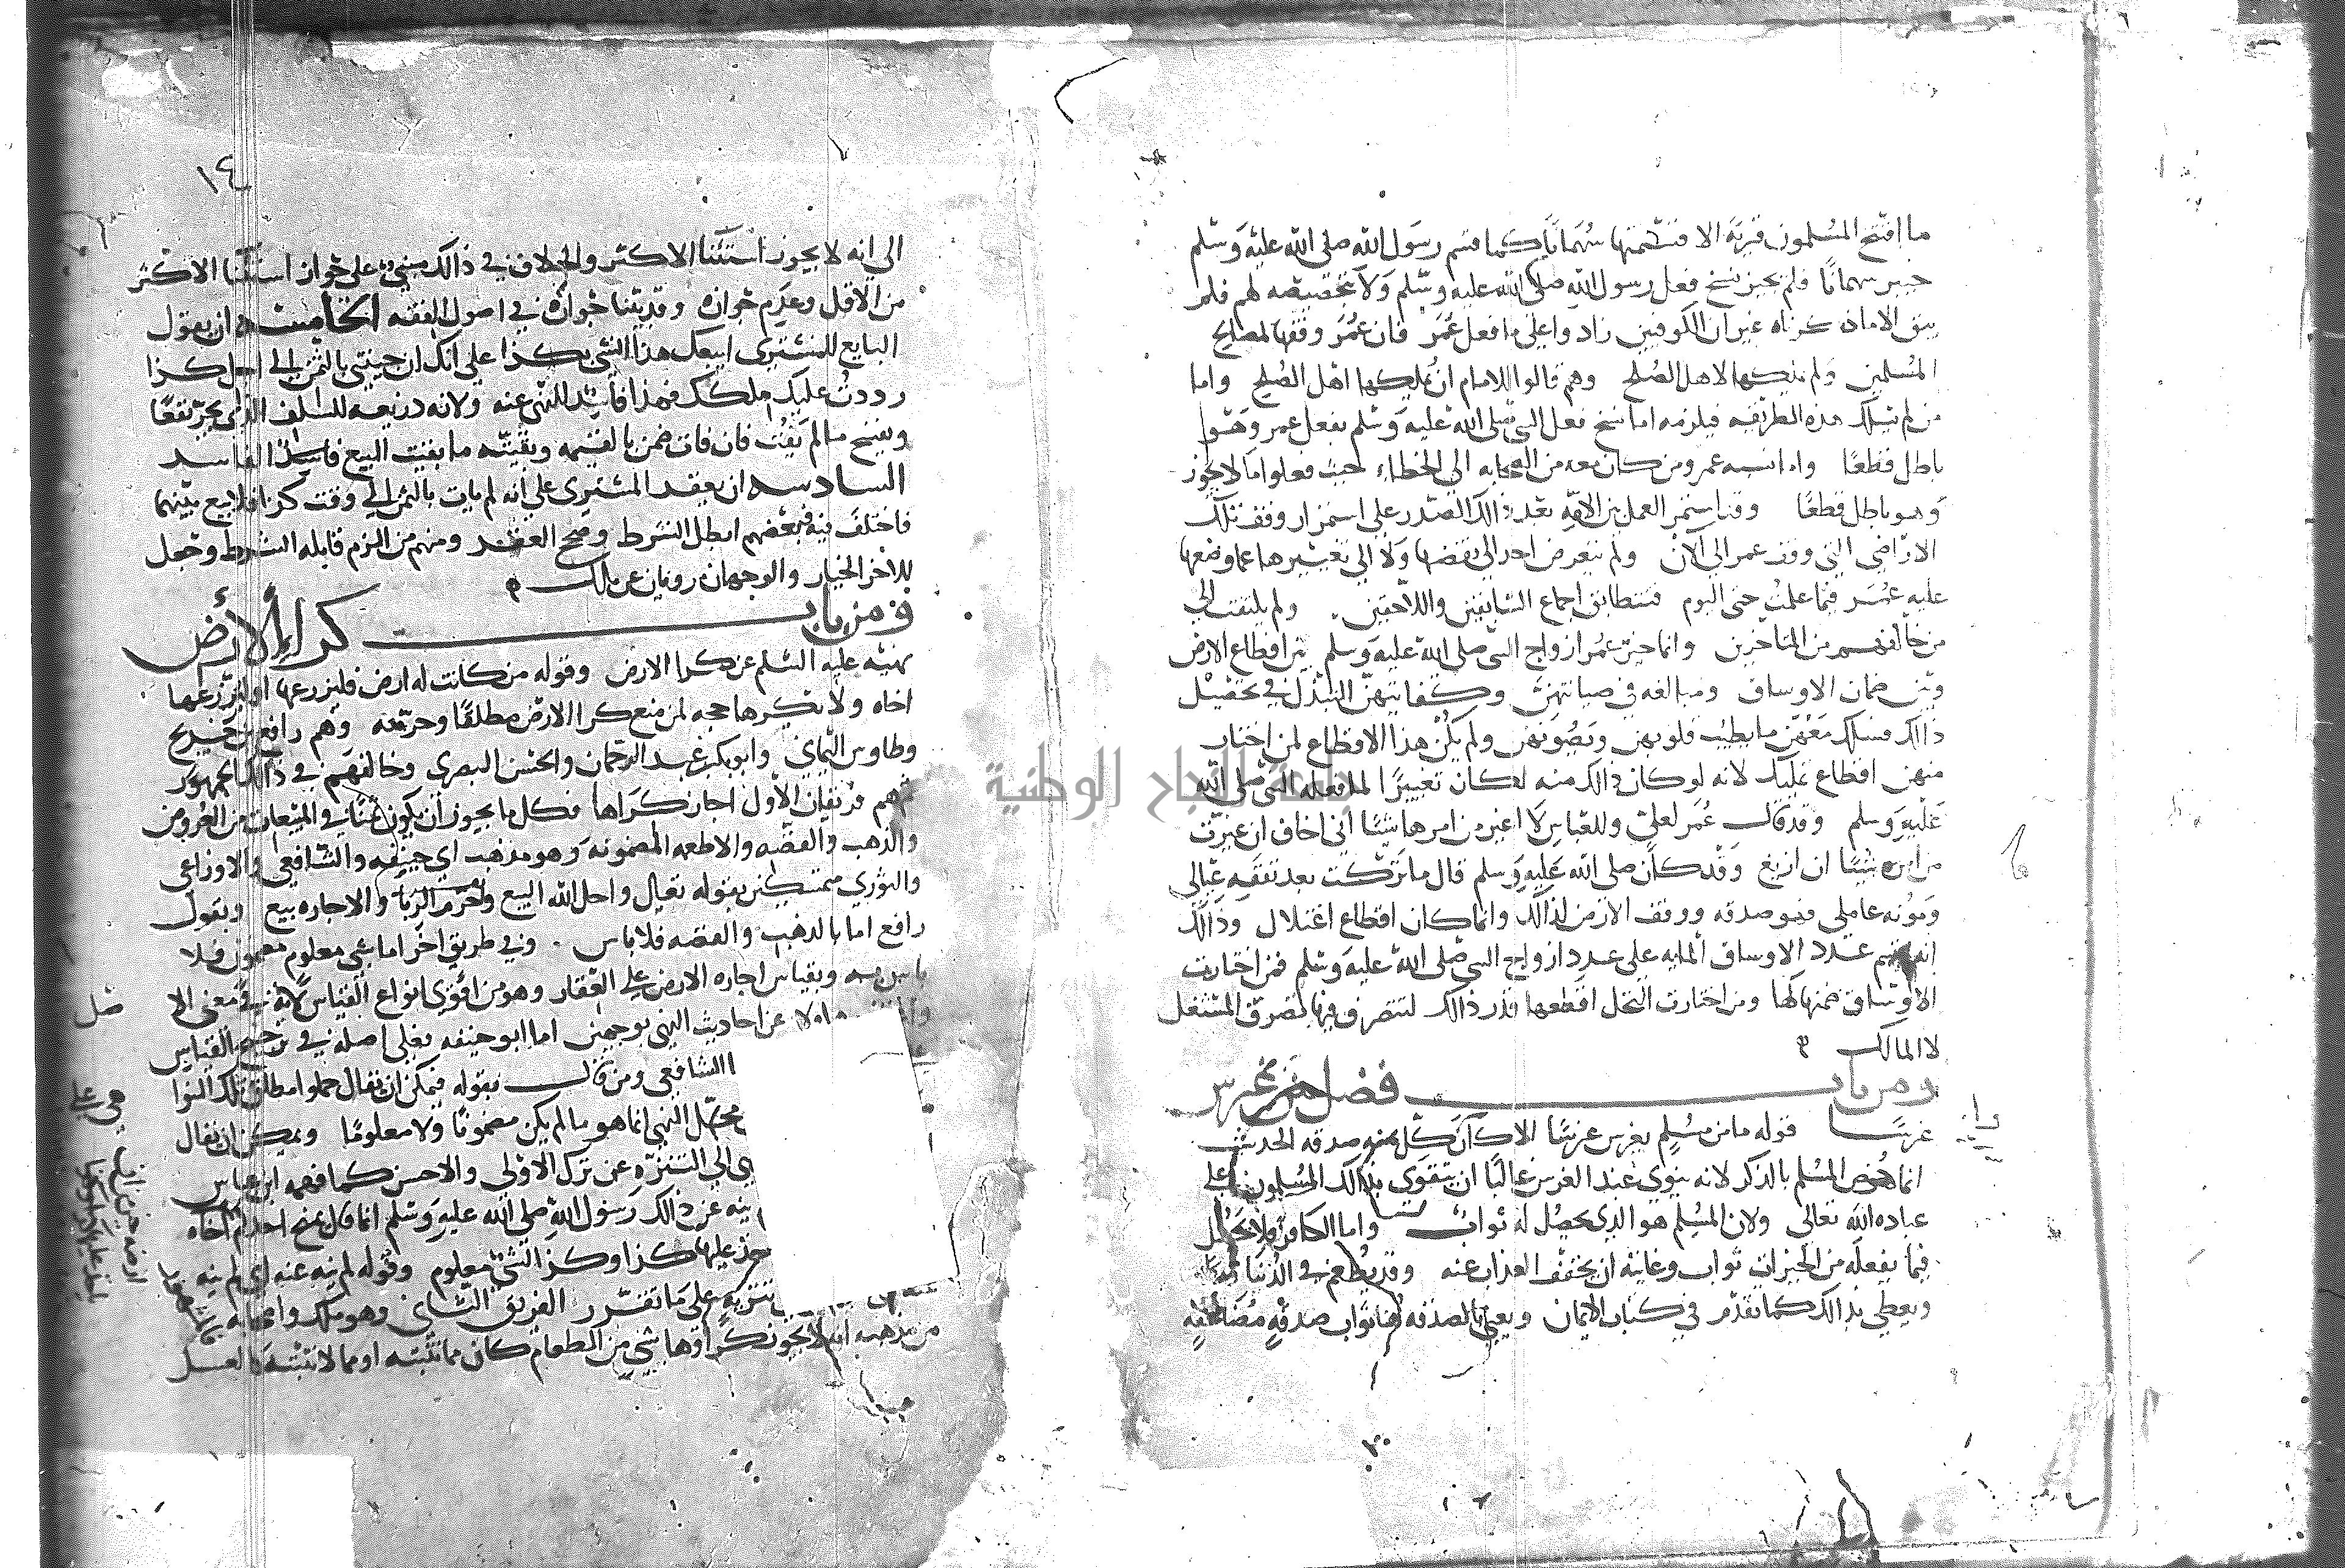 ما افتتح المسلمون قرية الا قسمتها سهمانا كما قسم رسول الله صلى الله عليه وسلم
خيبر سهمانا فلم يخبر بنسخ فعل رسول الله صلى الله عليه وسلم ولا بتخصيصه لهم فلم
يبق الا ما ذكرناه غير ان الكوفيين زادوا على ما فعل عمر فان عمر وقفها لمصالح
المسلمين ولم يملكها لاهل الصلح وهم قالوا للامام ان يملكها اهل الصلح واما
من لم يسلك هذه الطريقه فيلزمه اما نسخ فعل النبي صلى الله عليه وسلم بفعل عمر وهو
باطل قطعا واما نسبه عمر ومن كان معه من الصحابه الى الخطاء حيث فعلوا ما لا يجوز
وهو باطل قطعا وقد استمر العمل من الامة بعد ذالك الصدر على استمرار وقف تلك
الاراضي التي وقف عمر الى الان ولم يتعرض احد الى نقضها ولا الى تغييرها عما وضعها
عليه عمر فيما علمت حتى اليوم فتطابق اجماع السابقين واللاحقين ولم يلتفت الى
من خالفهم من المتاخرين وانما خير عمر ازواج النبي صلى الله عليه وسلم بين اقطاع الارض
وبين ضمان الاوساق ومبالغه في صيانتهن وكفايتهن التبذل في تحصيل
ذالك فسلك معهن ما يطيب قلوبهن ويصونهن ولم يكن هذا الاقطاع لمن اختار
منهن اقطاع تمليك لانه لو كان ذالك منه لكان تغييرا لما فعله النبي صلى الله
عليه وسلم وقد قال عمر لعلي وللعباس لا اغير من امرها شيئا اني اخاف ان غيرت
من امره شيئا ان ازيغ وقد كان صلى الله عليه وسلم قال ما تركت بعد نفقه عيالي
ومونه عاملي فهو صدقه ووقف الارض لذالك وانما كان اقطاع اغتلال وذالك
انه قسم عدد الاوساق المايه على عدد ازواج النبي صلى الله عليه وسلم فمن اختارت
الاوساق ضمنها لها ومن اختارت النخل اقطعها قدر ذالك لتتصرف فيها تصرف المستغل
لا المالك
ومن باب فضل من غرس
غرسا قوله ما من مسلم يغرس غرسا الا كان كل منه صدقه الحديث
انما خص المسلم بالذكر لانه ينوي عند الغرس غالبا ان يتقوى بذالك المسلمون على
عباده الله تعالى ولان المسلم هو الذي يحصل له ثواب واما الكافر فلا يحصل له
فيما يفعله من الخيرات ثواب وغايته ان يخفف العذاب عنه وقد يطعم في الدنيا
ويعطي بذالك كما تقدم في كتاب الايمان ويعني بالصدقه هنا ثواب صدقة مضاعفة
١٤
الى انه لا يجوز استثنا الاكثر والخلاف في ذالك مبني على جواز استثنا الاكثر
من الاقل وعدم جوازه وقد بينا جوازه في اصول الفقه الخامسه ان يقول
البايع للمشتري ابيعك هذا الشي بكذا على انك ان جيتني بالثمن الى اجل كذا
رددت عليك ملكك فهذا فاسد للنهي عنه ولانه ذريعه للسلف الذي يجر نفعا
ويفسخ ما لم يفت فان فات ضمن بالقيمه
السادسه ان يعقد المشتري على انه لم يات بالثمن الى وقت كذا فلا بيع بينهما
فاختلف فيه فبعضهم ابطل الشرط وصحح العقد ومنهم من الزم قابله الشرط وجعل
للاخر الخيار والوجهان رويان عن مالك
ومن باب كراء الارض
نهيه عليه السلم عن كرا الارض وقوله من كانت له ارض فليزرعها او ليزرعها
اخاه ولا يكرها حجه لمن منع كرا الارض مطلقا وهم رافع بن خديج
وطاوس اليماني وابو بكر بن عبد الرحمان والحسن البصري وخالفهم في ذالك الجمهور
ثم هم فريقان الاول اجاز كراها بكل ما يجوز ان يكون ثمنا في المبيعات من العروض
والذهب والفضه والاطعمه المضمونه وهو مذهب ابي حنيفه والشافعي والاوزاعي
والثوري متمسكين بقوله تعالى واحل الله البيع وحرم الربا والاجاره بيع وبقول
رافع اما بالذهب والفضه فلا باس وفي طريق اخر اما بشي معلوم مضمون فلا
باس به وبقياس اجاره الارض على العقار وهو من اقوى انواع القياس لانه في معنى الا
صل
عن احاديث النهي بوجهين اما ابو حنيفه فعلى اصله في ترجيح القياس
الشافعي ومن قال بقوله فيمكن ان يقال حملوا مطلق تلك النوا
هي على
محتمل النهي انما هو ما لم يكن مضمونا ولا معلوما ويمكن ان يقال
الى التنزه عن ترك الاولى والاحسن كما فهمه ابن عباس
ينه عن ذالك رسول الله صلى الله عليه وسلم انما قال يمنح احدكم اخاه
عليها كذا وكذا لشي معلوم وقوله لم ينه عنه اي لم ينه
تنزيه على ما تقرر الفريق الثاني وهو ملك واصحابه
من مذهبه انه لا يجوز كراوها بشي من الطعام كان مما تنبته او مما لا تنبته كالعسل
جامعة النجاح الوطنية